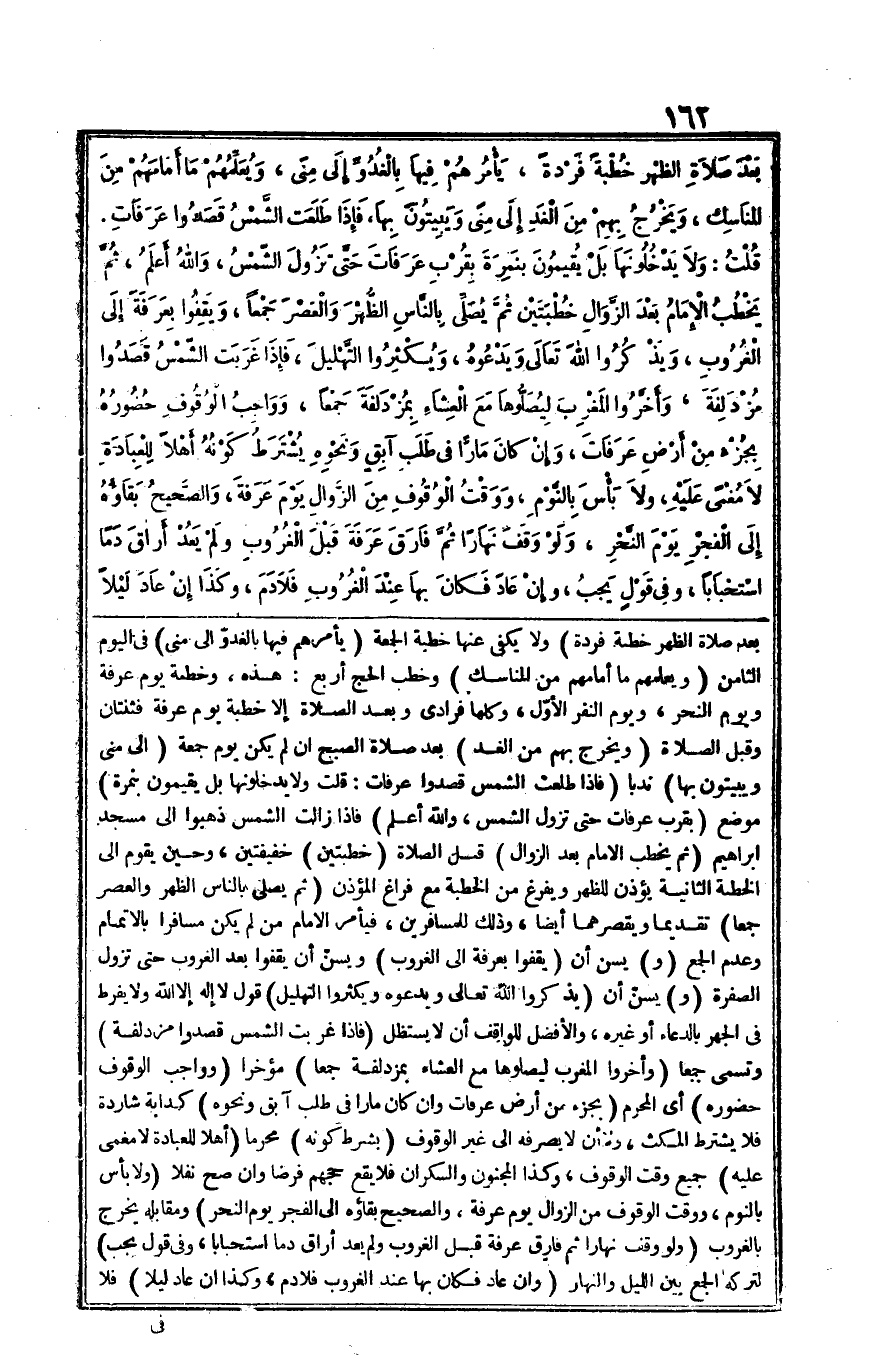 ١٦٢
بَعْدَ صَلَاةِ الظُّهْرِ خُطْبَةً فَرْدَةً ، يَأْمُرُهُمْ فِيهَا بِالْغُدُوِّ إِلَى مِنًى ، وَيُعَلِّمُهُمْ مَا أَمَامَهُمْ مِنَ
الْمَنَاسِكِ ، وَيَخْرُجُ بِهِمْ مِنَ الْغَدِ إِلَى مِنًى وَيَبِيتُونَ بِهَا، فَإِذَا طَلَعَتِ الشَّمْسُ قَصَدُوا عَرَفَاتٍ .
قُلْتُ : وَلاَ يَدْخُلُونَهَا بَلْ يُقِيمُونَ بِنَمِرَةَ بِقُرْبِ عَرَفَاتٍ حَتَّى تَزُولَ الشَّمْسُ ، وَاللهُ أَعْلَمُ ، ثُمَّ
يَخْطُبُ الْإِمَامُ بَعْدَ الزَّوَالِ خُطْبَتَيْنِ ثُمَّ يُصَلِّي بِالنَّاسِ الظُّهْرَ وَالْعَصْرَ جَمْعًا ، وَيَقِفُوا بِعَرَفَةَ إِلَى
الْغُرُوبِ ، وَيَذْكُرُوا اللهَ تَعَالَى وَيَدْعُوهُ ، وَيُكْثِرُوا التَّهْلِيلَ ، فَإِذَا غَرَبَتِ الشَّمْسُ قَصَدُوا
مُزْدَلِفَةَ ، وَأَخَّرُوا الْمَغْرِبَ لِيُصَلُّوهَا مَعَ الْعِشَاءِ بِمُزْدَلِفَةَ جَمْعًا ، وَوَاجِبُ الْوُقُوفِ حُضُورُهُ
بِجُزْءٍ مِنْ أَرْضِ عَرَفَاتٍ ، وَإِنْ كَانَ مَارًّا فِى طَلَبِ آبِقٍ وَنَحْوِهِ يُشْتَرَطُ كَوْنُهُ أَهْلاً لِلْعِبَادَةِ
لاَ مُغْمًى عَلَيْهِ، ولاَ بَأْسَ بِالنَّوْمِ ، وَوَقْتُ الْوُقُوفِ مِنَ الزَّوَالِ يَوْمَ عَرَفَةَ ، وَالصَّحِيحُ بَقَاؤُهُ
إِلَى الْفَجْرِ يَوْمَ النَّحْرِ ، وَلَوْ وَقَفَ نَهَارًا ثُمَّ فَارَقَ عَرَفَةَ قَبْلَ الْغُرُوبِ ولَمْ يَعُدْ أَرَاقَ دَمًا
اسْتِحْبَابًا ، وَفِى قَوْلٍ يَجِبُ ، وَإِنْ عَادَ فَكَانَ بِهَا عِنْدَ الْغُرُوبِ فَلَادَمَ ، وَكَذَا إِنْ عَادَ لَيْلاً
بعد صلاة الظهر خطبة فردة ) ولا يكفى عنها خطبة الجمعة ( يأمرهم فيها بالغدوّ الى منى ) فى اليوم
الثامن ( ويعلمهم ما أمامهم من المناسك ) وخطب الحج أربع : هذه ، وخطبة يوم عرفة
ويوم النحر ، ويوم النفر الأوّل ، وكلها فرادى وبعد الصلاة إلا خطبة يوم عرفة فثنتان
وقبل الصلاة ( ويخرج بهم من الغد ) بعد صلاة الصبح ان لم يكن يوم جمعة ( الى منى
ويبيتون بها) ندبا ( فاذا طلعت الشمس قصدوا عرفات : قلت ولايدخلونها بل يقيمون بنمرة )
موضع ( بقرب عرفات حتى تزول الشمس ، والله أعلم ) فاذا زالت الشمس ذهبوا الى مسجد
ابراهيم ( ثم يخطب الامام بعد الزوال ) قبل الصلاة ( خطبتين ) خفيفتين ، وحين يقوم الى
الخطبة الثانية يؤذن للظهر ويفرغ من الخطبة مع فراغ المؤذن ( ثم يصلى بالناس الظهر والعصر
جمعا ) تقديما ويقصرهما أيضا ، وذلك للمسافرين ، فيأمر الامام من لم يكن مسافرا بالاتمام
وعدم الجمع ( و) يسن أن ( يقفوا بعرفة الى الغروب ) ويسنّ أن يقفوا بعد الغروب حتى تزول
الصفرة ( و) يسنّ أن (يذكروا الله تعالى ويدعوه ويكثروا التهليل) قول لا إله إلا الله ولا يفرط
فى الجهر بالدعاء أو غيره ، والأفضل للواقف أن لا يستظل (فاذا غربت الشمس قصدوا مزدلفة )
وتسمى جمعا ( وأخروا المغرب ليصلوها مع العشاء بمزدلفة جمعا ) مؤخرا ( وواجب الوقوف
حضوره ) أى المحرم ( بجزء من أرض عرفات وان كان مارا فى طلب آبق ونحوه ) كدابة شاردة
فلا يشترط المكث ، ولا أن لا يصرفه الى غير الوقوف ( بشرط كونه ) محرما (أهلا للعبادة لا مغمى
عليه ) جميع وقت الوقوف ، وكذا المجنون والسكران فلا يقع حجهم فرضا وان صح نفلا (ولا بأس
بالنوم ، ووقت الوقوف من الزوال يوم عرفة ، والصحيح بقاؤه الى الفجر يوم النحر ) ومقابله يخرج
بالغروب ( ولو وقف نهارا ثم فارق عرفة قبل الغروب ولم يعد أراق دما استحبابا ، وفى قول يجب)
لتركه الجمع بين الليل والنهار ( وان عاد فكان بها عند الغروب فلادم ، وكذا ان عاد ليلا ) فلا
فى